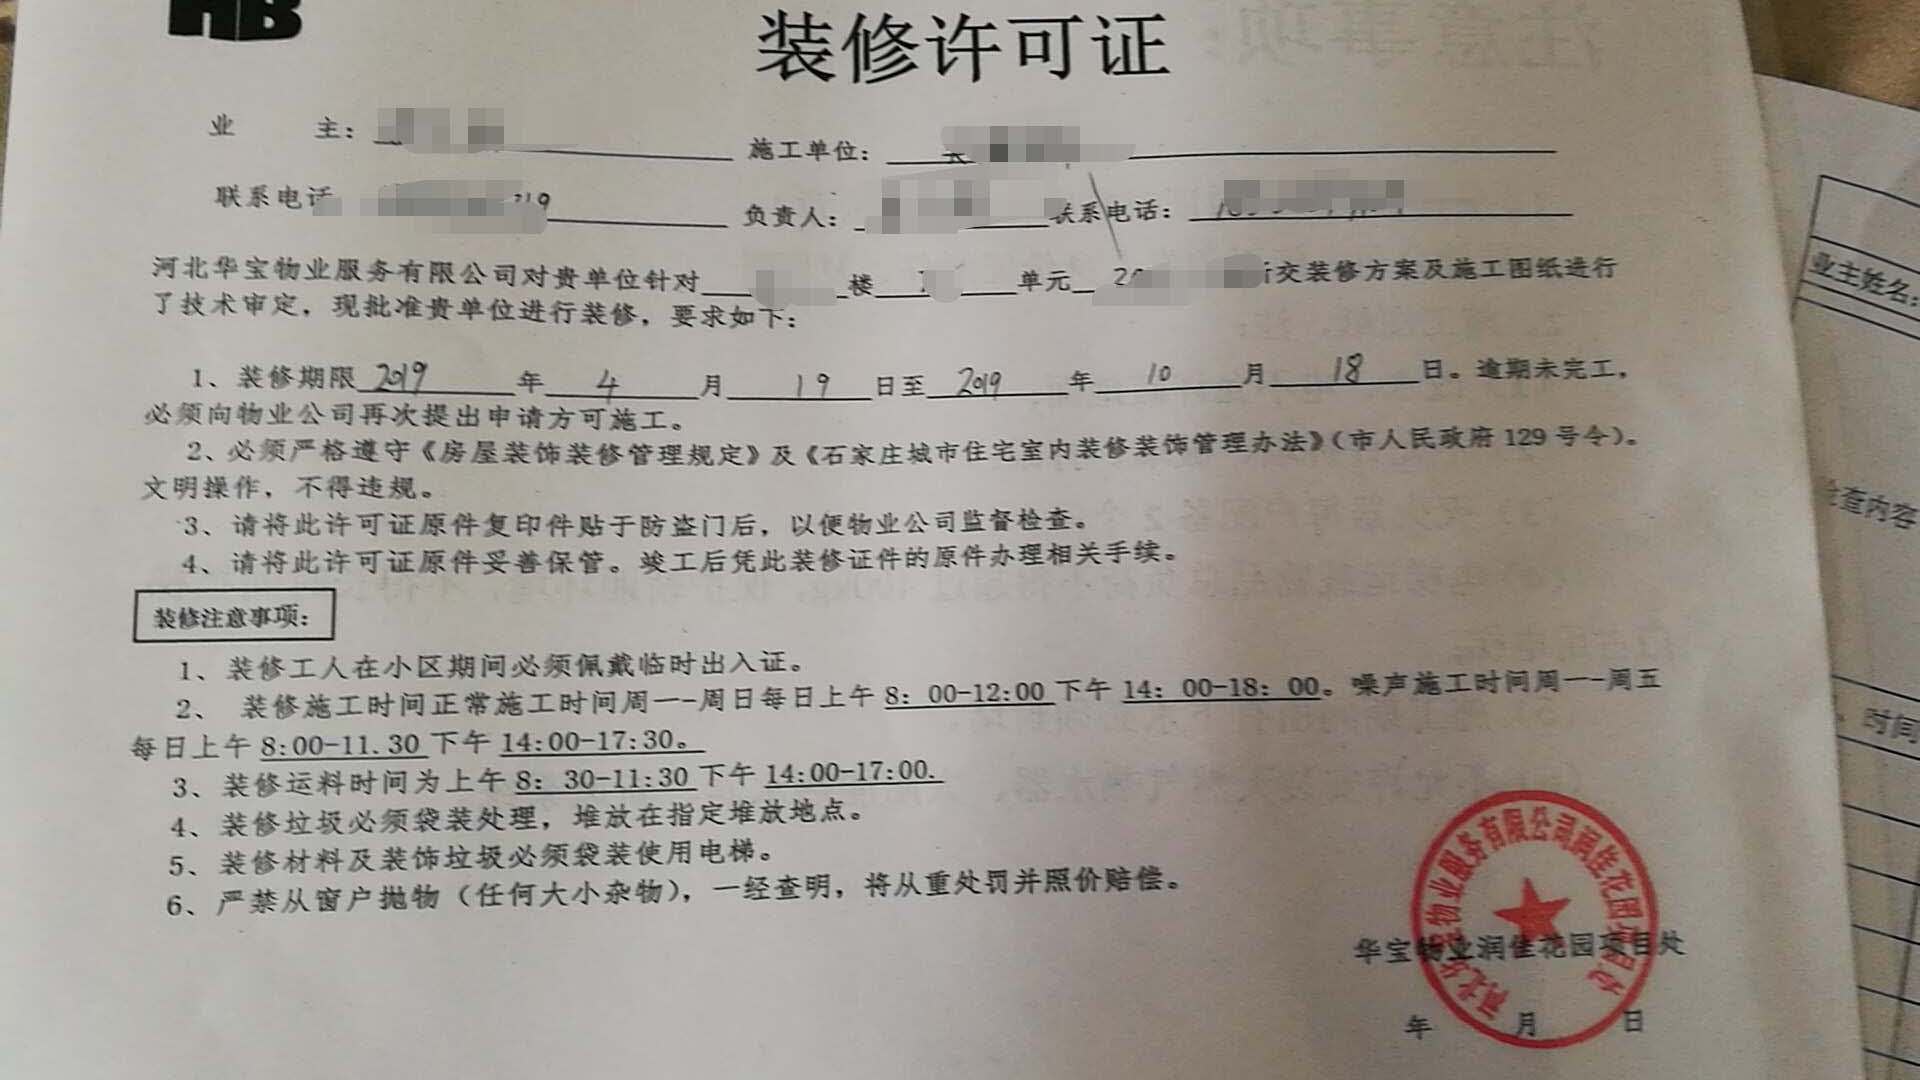 HB
装修许可证
业 主：
施工单位：
联系电话 19
负责人： 联系电话：
河北华宝物业服务有限公司对贵单位针对 楼 单元 20 所交装修方案及施工图纸进行
了技术审定，现批准贵单位进行装修，要求如下：
1、装修期限 2019 年 4 月 19 日至 2019 年 10 月 18 日。逾期未完工，
必须向物业公司再次提出申请方可施工。
2、必须严格遵守《房屋装饰装修管理规定》及《石家庄城市住宅室内装修装饰管理办法》（市人民政府 129 号令）。
文明操作，不得违规。
3、请将此许可证原件复印件贴于防盗门后，以便物业公司监督检查。
4、请将此许可证原件妥善保管。竣工后凭此装修证件的原件办理相关手续。
装修注意事项：
1、装修工人在小区期间必须佩戴临时出入证。
2、 装修施工时间正常施工时间周一-周日每日上午 8：00-12:00 下午 14：00-18：00。噪声施工时间周一-周五
每日上午 8:00-11.30 下午 14:00-17:30。
3、装修运料时间为上午 8：30-11:30 下午 14:00-17:00.
4、装修垃圾必须袋装处理，堆放在指定堆放地点。
5、装修材料及装饰垃圾必须袋装使用电梯。
6、严禁从窗户抛物（任何大小杂物），一经查明，将从重处罚并照价赔偿。
华宝物业润佳花园项目处
年 月 日
河北华宝物业服务有限公司润佳花园项目处
业主姓名：
检查内容
时间